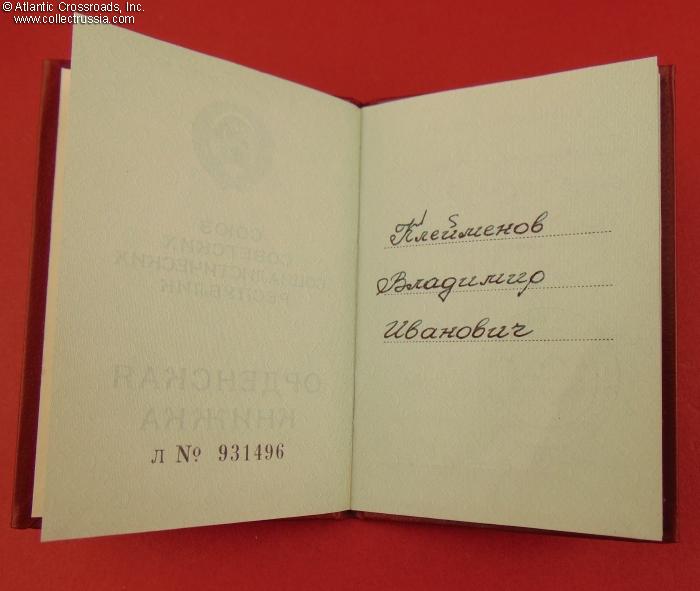 © Atlantic Crossroads, Inc.
www.collectrussia.com
СОЮЗ
СОВЕТСКИХ
СОЦИАЛИСТИЧЕСКИХ
РЕСПУБЛИК
ОРДЕНСКАЯ
КНИЖКА
Л № 931496
Клейменов
Владимир
Иванович